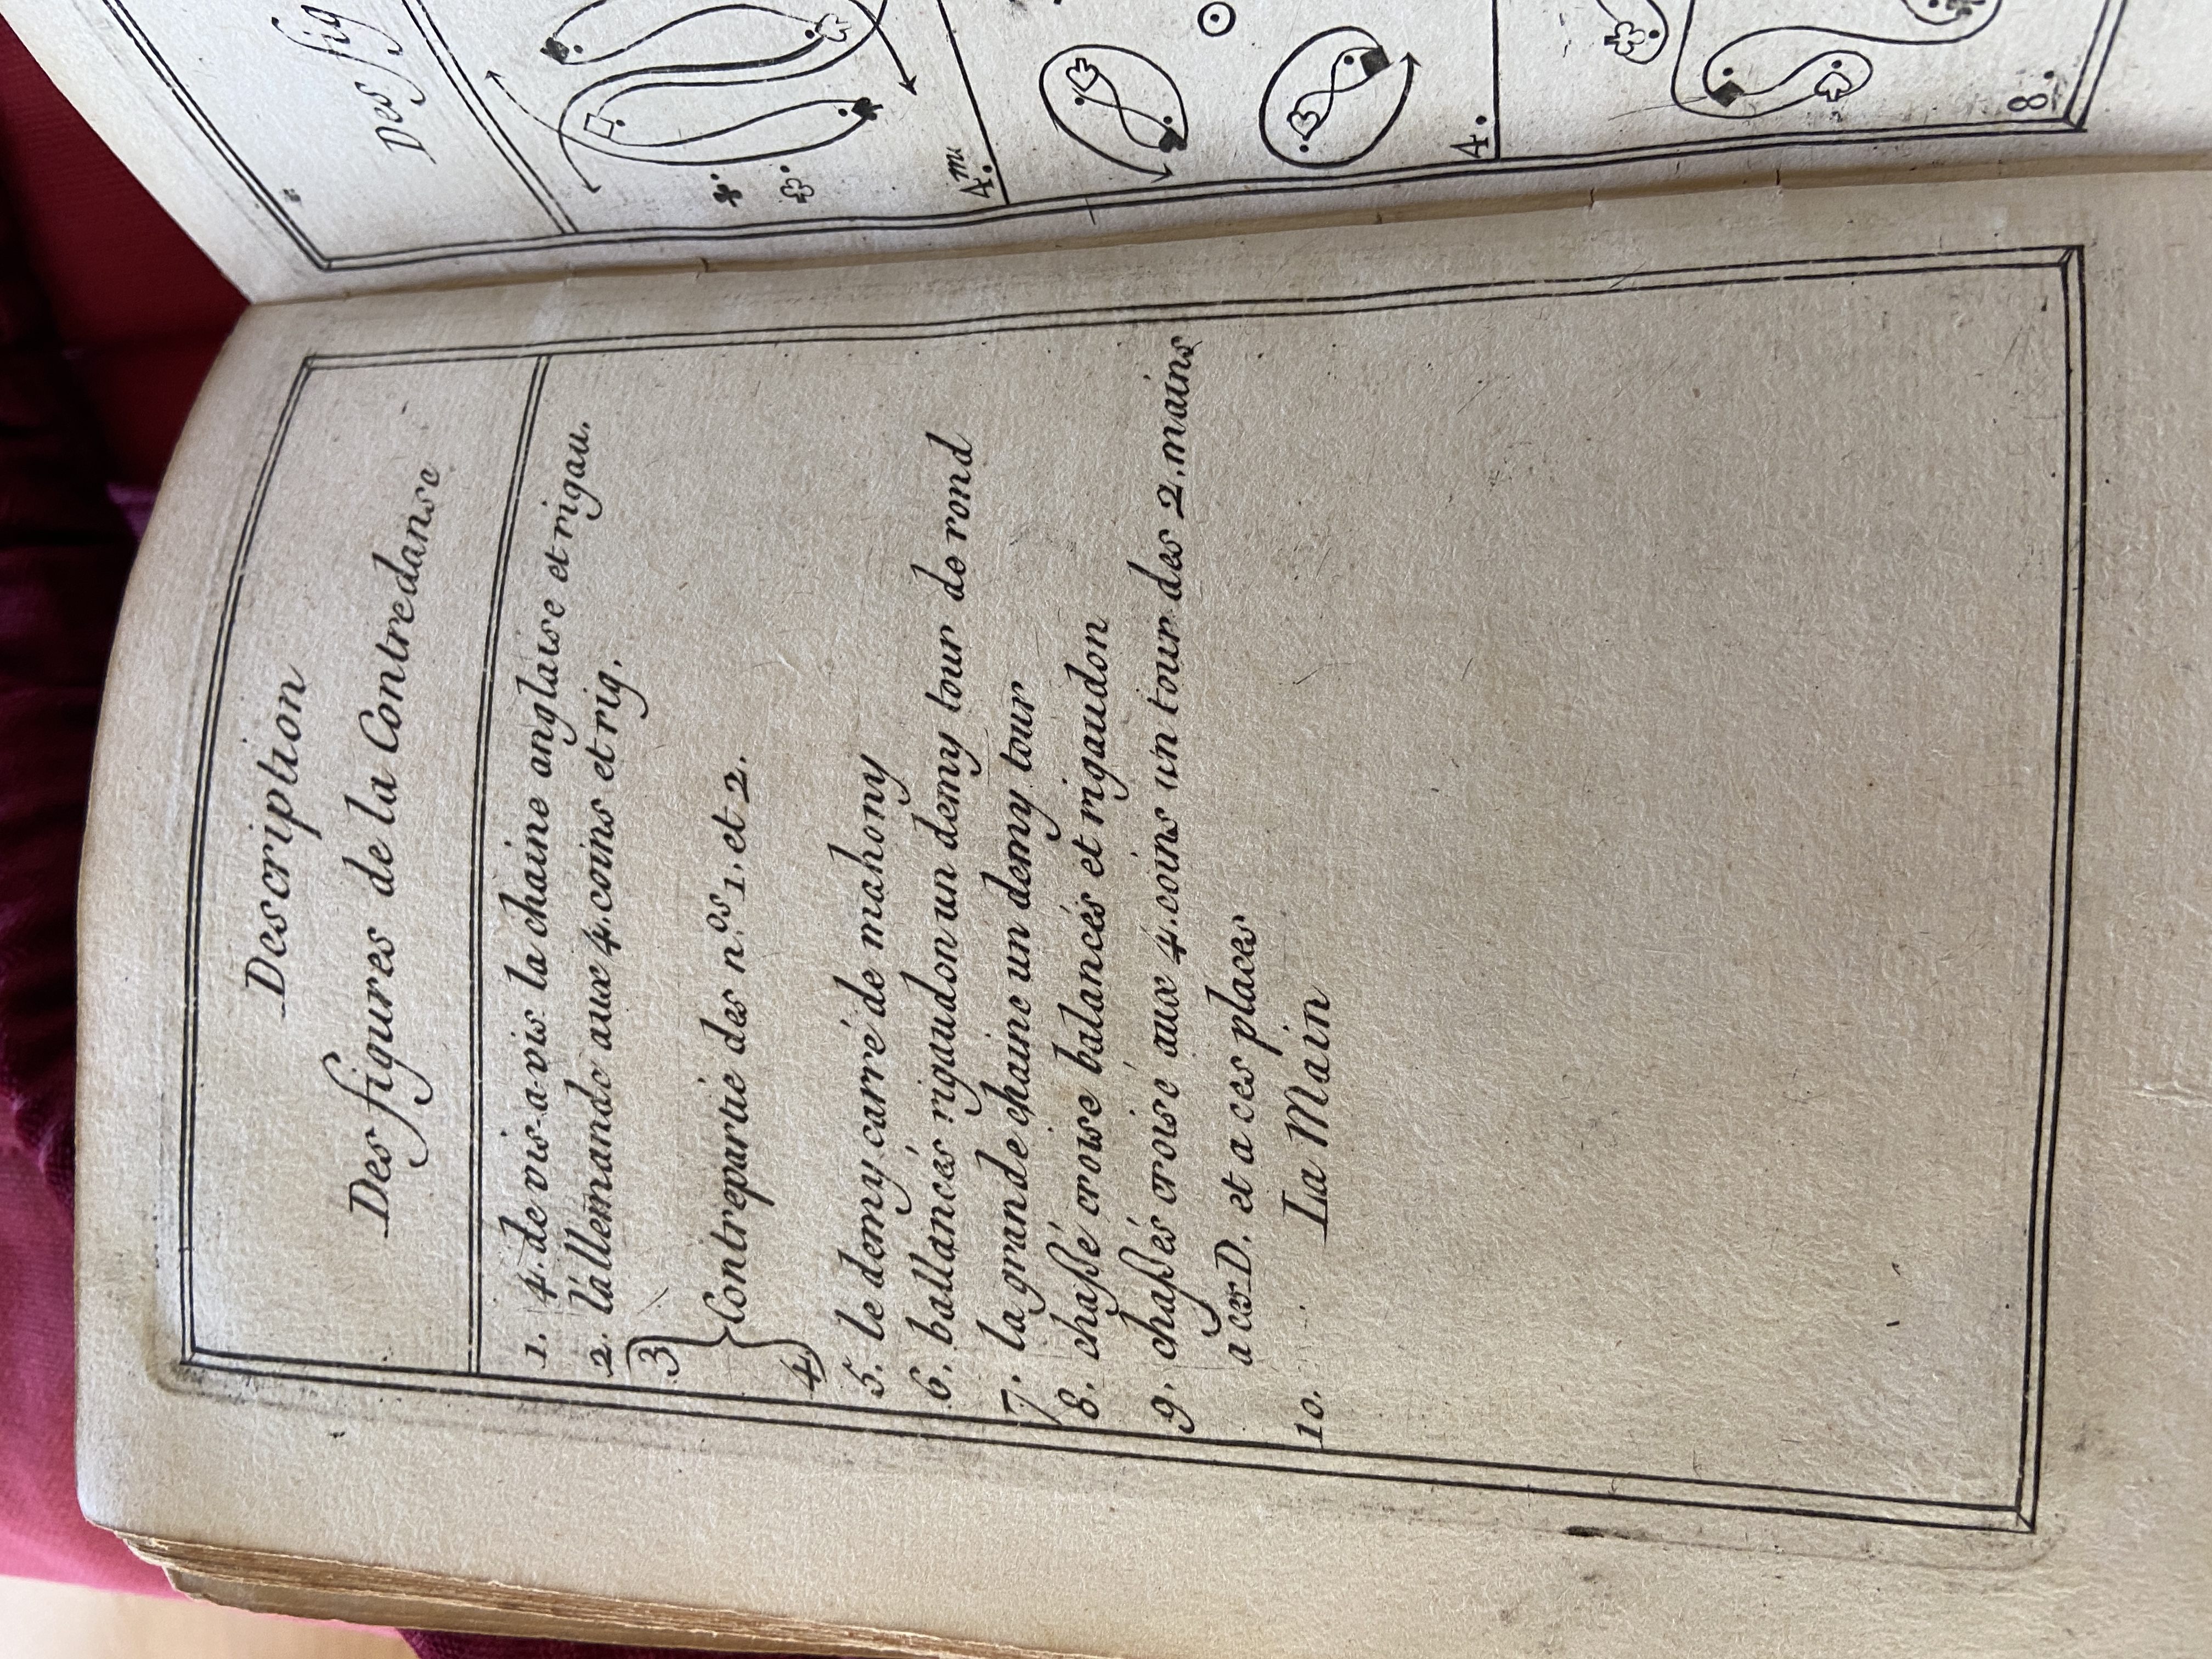 Description
Des figures de la Contredanse
1. 4. de vis-a-vis la chaine anglaise et rigau.
2. l'allemande aux 4. coins et rig.
3
Contrepartie des n.os 1. et 2.
4.
5. le demy carré de mahony
6. ballancés rigaudon un demy tour de rond
7. la grande chaine un demy tour
8. chassé croise balancés et rigaudon
9. chassés croisé aux 4. coins un tour des 2. mains
a ces D. et a ces places
10. La Main
Des fig
4.me
4.
8.